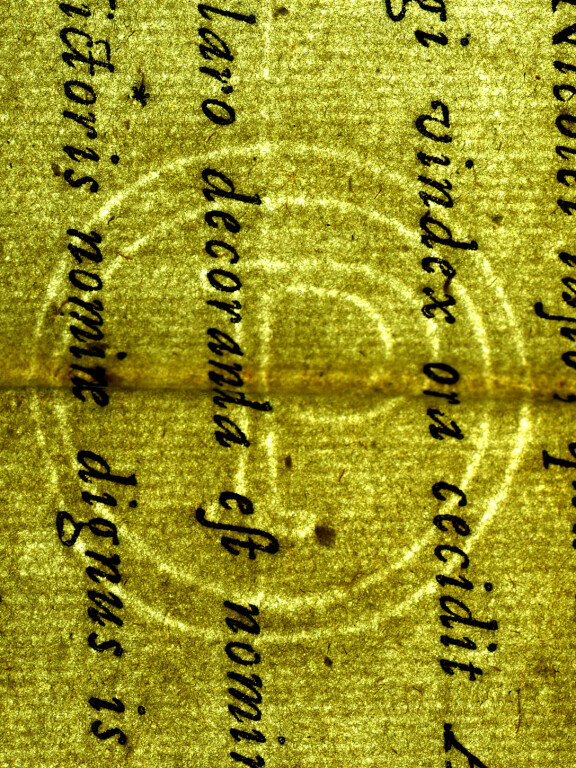 gi vindex ora cecidit
laro decoranda eſt nomin
ictoris nomine dignus is
P